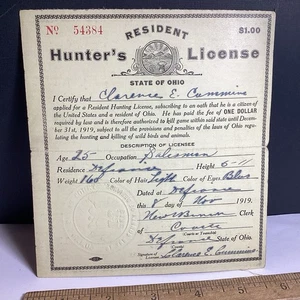 RESIDENT
No 54384
$1.00
Hunter's License
STATE OF OHIO
I Certify that Clarence E. Cummins
applied for a Resident Hunting License, subscribing to an oath that he is a citizen of
the United States and a resident of Ohio. He has paid the fee of ONE DOLLAR
required by law and is therefore authorized to hunt game with said state until December
31st, 1919, subject to all the provisions and penalties of the laws of Ohio regu-
lating the hunting and killing of wild birds and animals.
DESCRIPTION OF LICENSEE
Age 25 Occupation Salesman
Residence Defiance Height 6-11
Weight 160 Color of Hair Light Color of Eyes Blue
Dated at Defiance
this 8 day of Nov 1919.
Clerk
Courts
Defiance State of Ohio.
Signature of Clarence E. Cummins